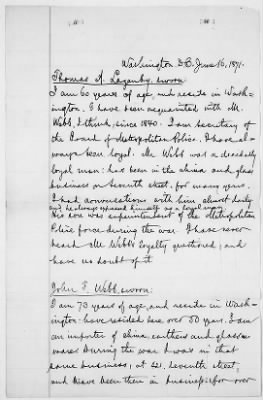 Washington D.C. June 16, 1871.
Thomas A. Lazenby, sworn
I am 60 years of age, and reside in Wash-
ington. I have been acquainted with Mr.
Webb, I think, since 1840. I am secretary of
the Board of Metropolitan Police. I have al-
ways been loyal. Mr. Webb was a decidedly
loyal man: has been in the china and glass
business on Seventh street, for many years.
I had conversation with him almost daily
and he always expressed himself as a loyal man.
His son was superintendent of the Metropolitan
Police force during the war. I have never
heard Mr. Webb's loyalty questioned; and
have no doubt of it
John F. Webb, sworn:
I am 73 years of age, and reside in Wash-
ington: have resided here over 50 years. I am
an importer of china, earthen and glass-
ware. During the war I was in that
same business, at 521, Seventh street,
and have been there in business for over